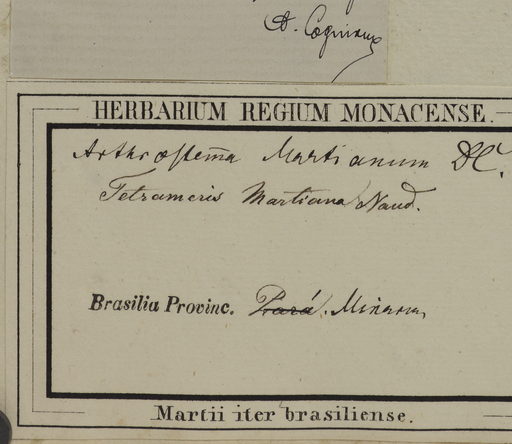 A. Cogniaux
HERBARIUM REGIUM MONACENSE.
Arthrostemma Martianum DC.
Tetrameris Martiana Naud.
Brasilia Provinc. Pará. Minarum
Martii iter brasiliense.